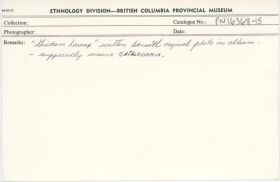 ETHNOLOGY DIVISION—BRITISH COLUMBIA PROVINCIAL MUSEUM
Collection: Catalogue No.: PN16368-15
Photographer: Date:
Remarks: written beneath original photo in album.
- supposedly means